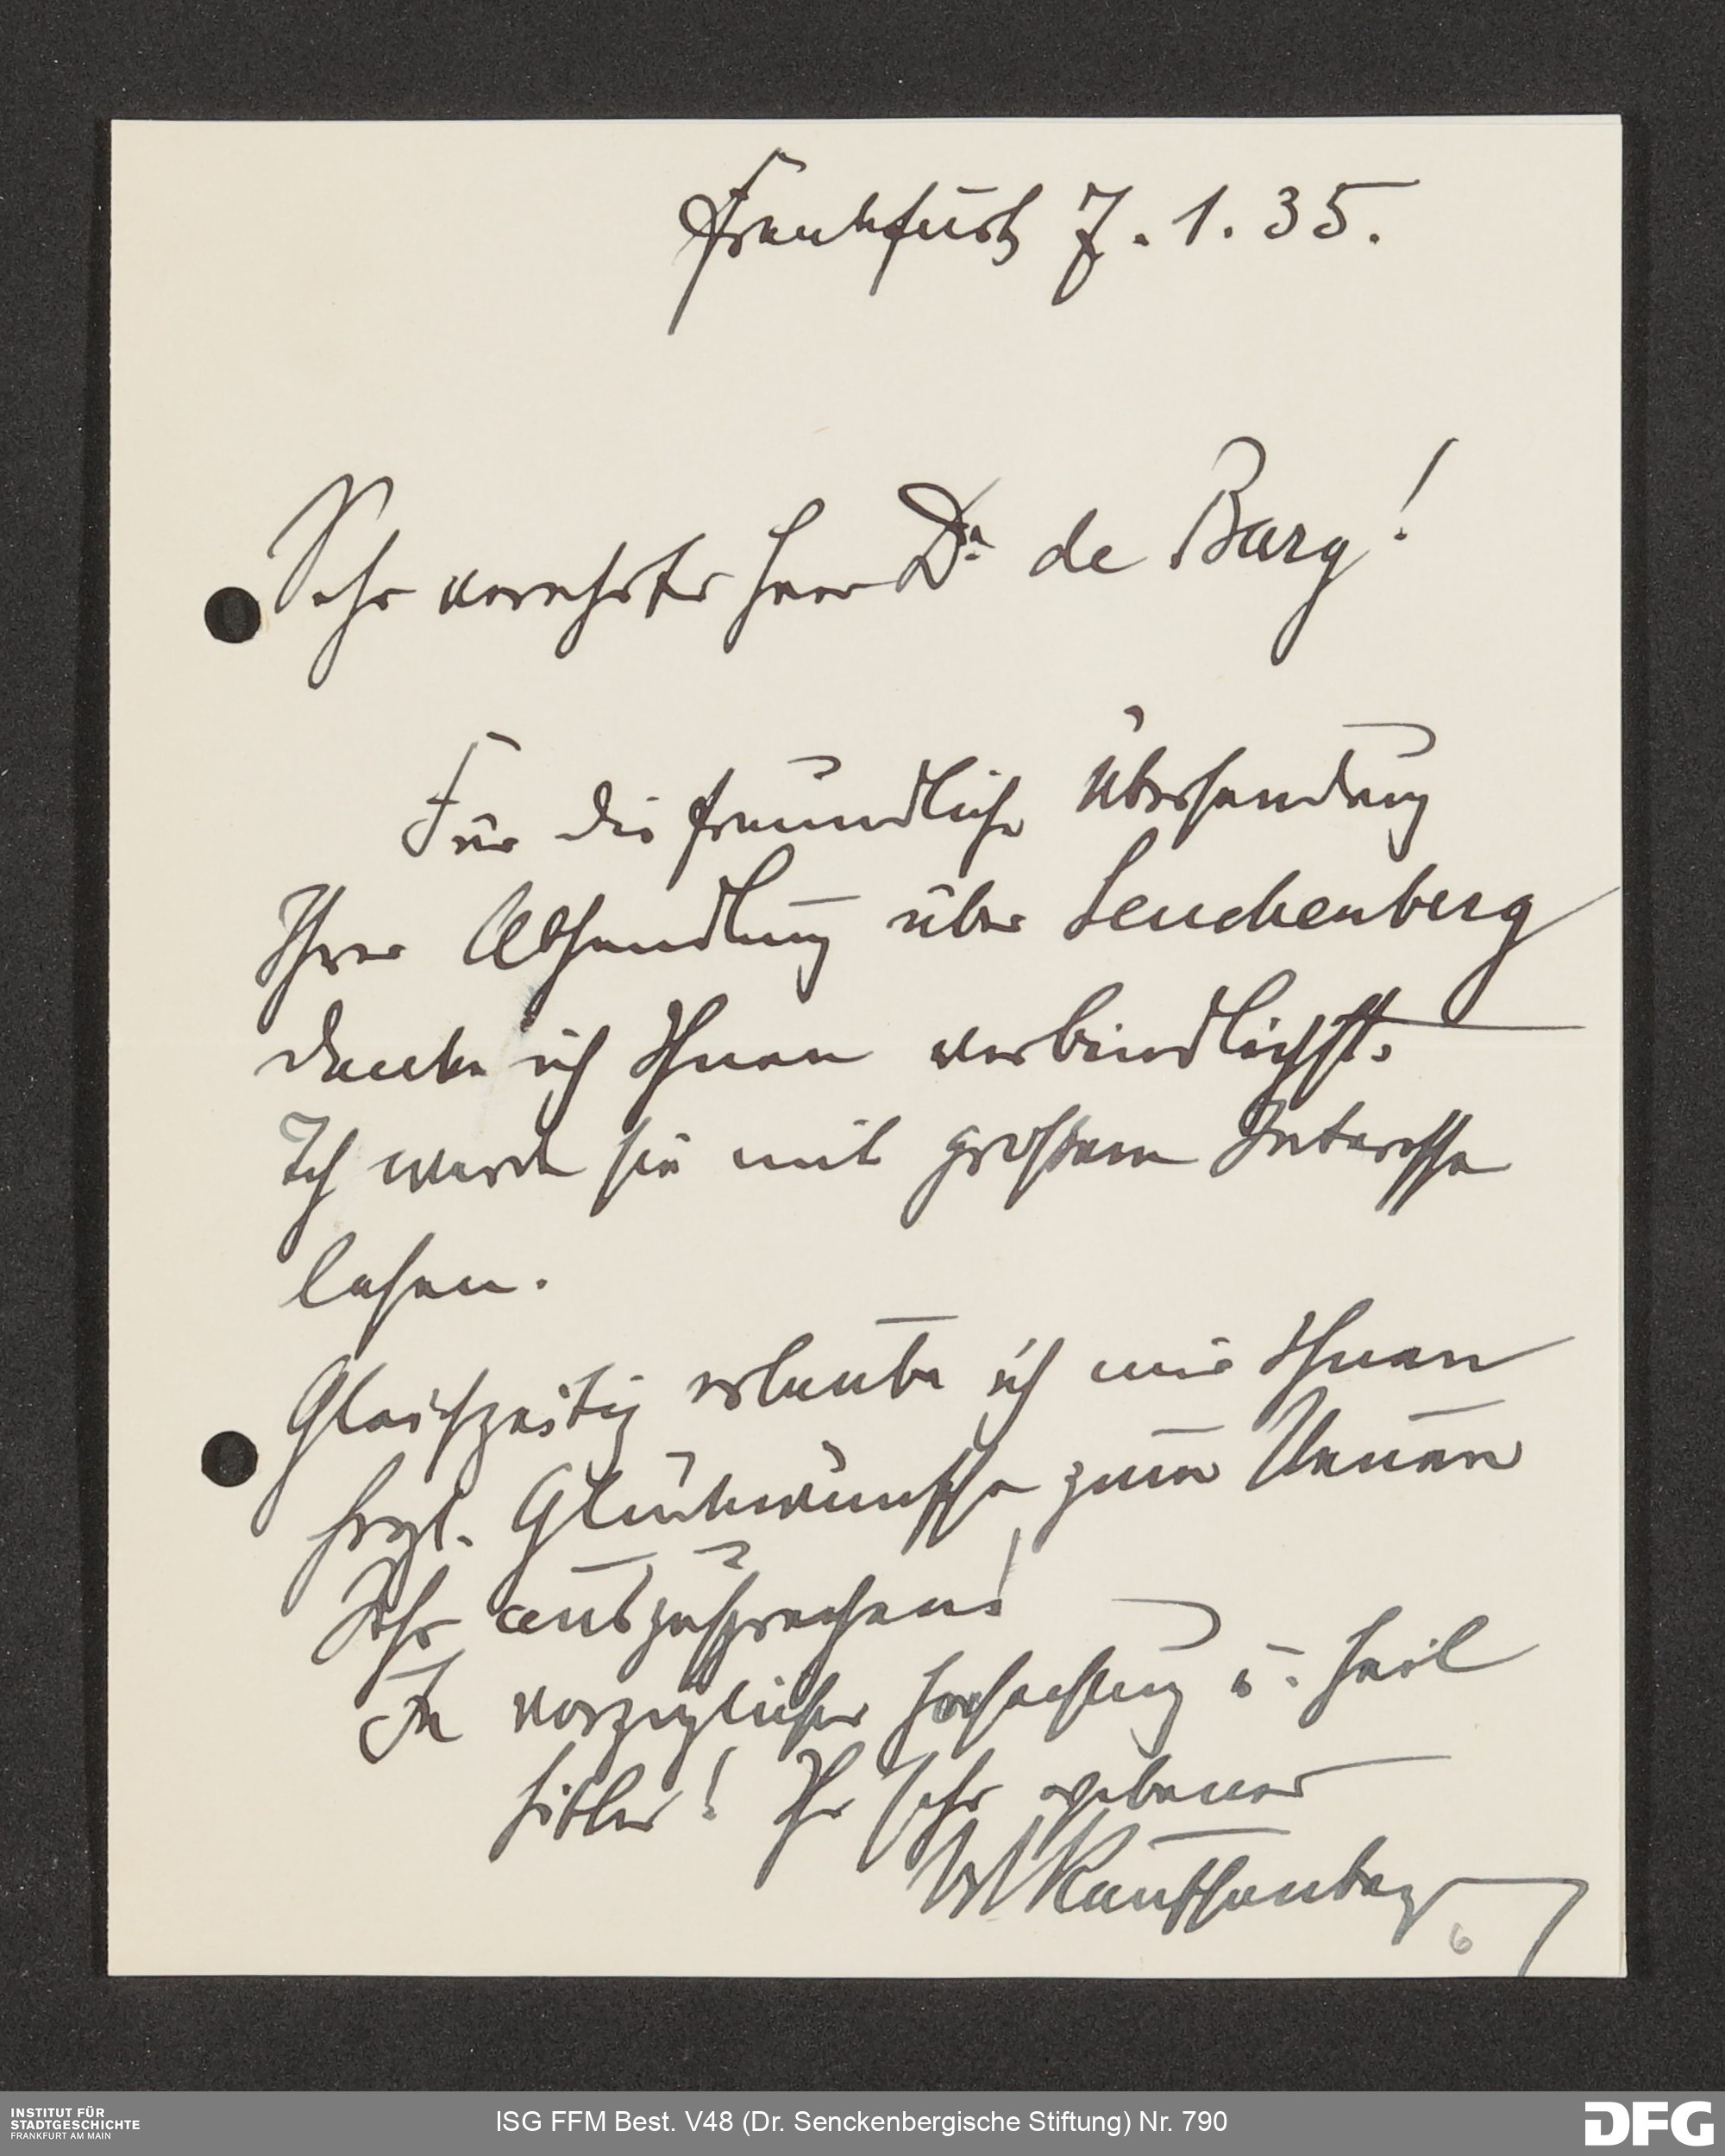 Frankfurt 7. 1. 35.
Sehr verehrter Herr Dr. de Bary!
Für die freundliche Übersendung
Ihrer Abhandlung über Senckenberg
danke ich Ihnen verbindlichst.
Ich werde sie mit großem Interesse
lesen.
Gleichzeitig erlaube ich mir Ihnen
hrzl. Glückwünsche zum Neuen
Jahr auszusprechen!
In vorzüglicher Hochachtung u. Heil
Hitler! Ihr sehr ergebener
6
INSTITUT FÜR
STADTGESCHICHTE
FRANKFURT AM MAIN
ISG FFM Best. V48 (Dr. Senckenbergische Stiftung) Nr. 790
DFG